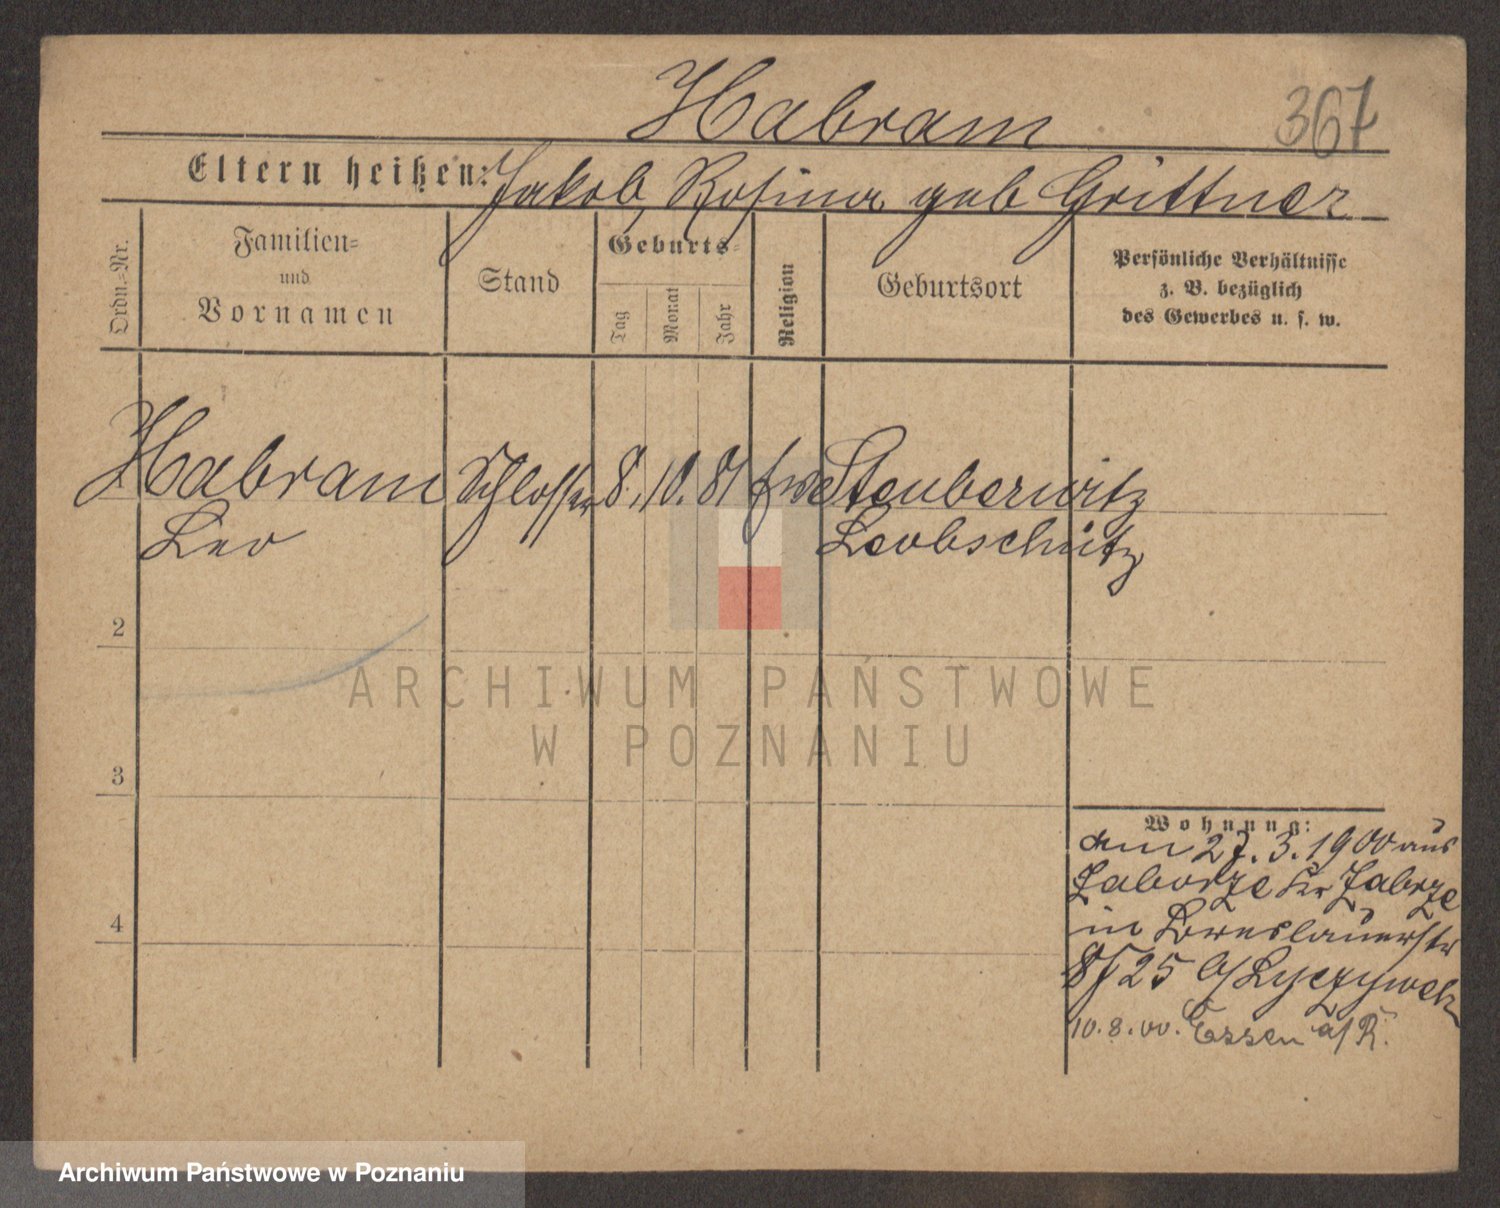 Habram
367
Eltern heißen: Jakob, Rosina geb Grittner
Ordn.-Nr.
Familien-
und
Vornamen
Stand
Geburts-
Tag
Monat
Jahr
Religion
Geburtsort
Persönliche Verhältnisse
z. B. bezüglich
des Gewerbes u. s. w.
Habram Schlosser 8. 10. 81 Steuberwitz
Leo Leobschütz
2
3
4
ARCHIWUM PAŃSTWOWE
W POZNANIU
Wohnung:
am 27. 3. 1900 aus
Zaborze Kr Zabrze
in Breslauerstr
8/25 b/
10.8.00. Essen a/R.
Archiwum Państwowe w Poznaniu